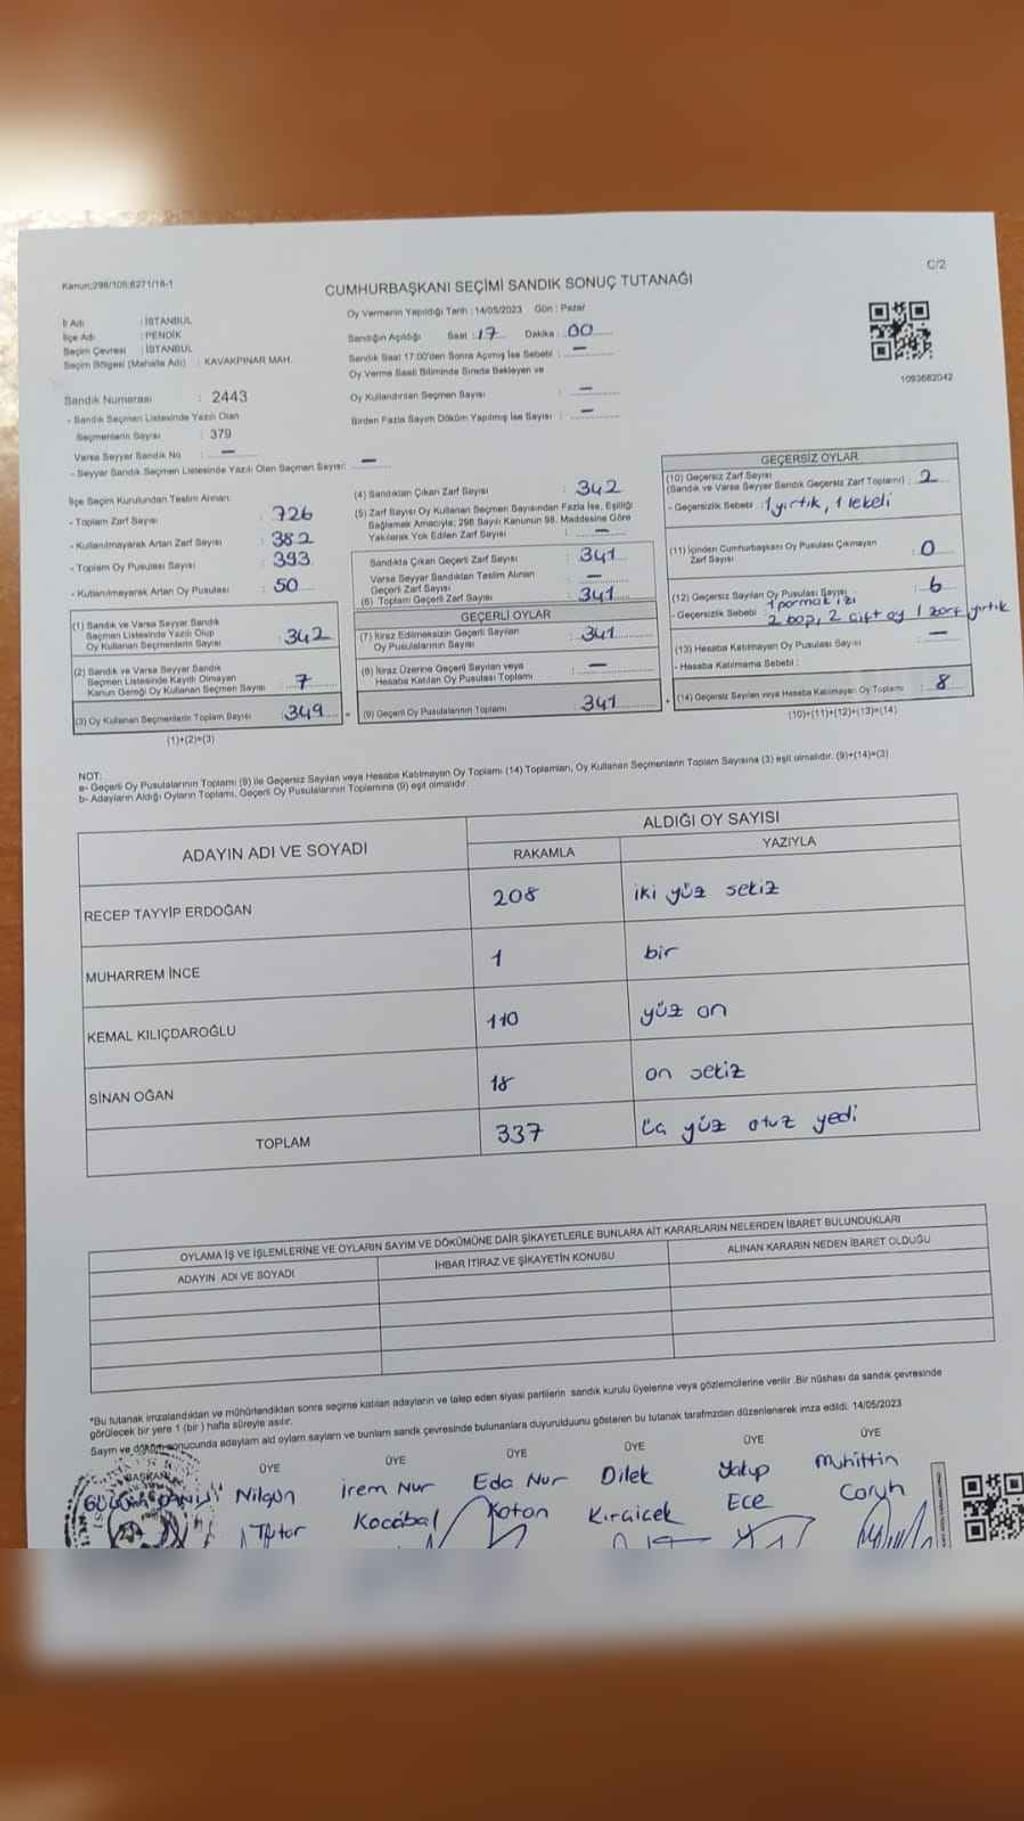 C/2
Kanun:298/105;6271/18-1
CUMHURBAŞKANI SEÇİMİ SANDIK SONUÇ TUTANAĞI
İl Adı : İSTANBUL
İlçe Adı : PENDİK
Seçim Çevresi : İSTANBUL
Seçim Bölgesi (Mahalle Adı) : KAVAKPINAR MAH.
Oy Vermenin Yapıldığı Tarih : 14/05/2023 Gün : Pazar
Sandığın Açıldığı Saat : 17 Dakika : 00
Sandık Saat 17:00'den Sonra Açılmış İse Sebebi : —
Oy Verme Saati Bitiminde Sırada Bekleyen ve
Oy Kullandırılan Seçmen Sayısı : —
Birden Fazla Sayım Döküm Yapılmış İse Sayısı : —
1093682042
Sandık Numarası : 2443
- Sandık Seçmen Listesinde Yazılı Olan
Seçmenlerin Sayısı : 379
Varsa Seyyar Sandık No : —
- Seyyar Sandık Seçmen Listesinde Yazılı Olan Seçmen Sayısı: —
İlçe Seçim Kurulundan Teslim Alınan:
- Toplam Zarf Sayısı : 726
- Kullanılmayarak Artan Zarf Sayısı : 382
- Toplam Oy Pusulası Sayısı : 393
- Kullanılmayarak Artan Oy Pusulası : 50
(1) Sandık ve Varsa Seyyar Sandık
Seçmen Listesinde Yazılı Olup
Oy Kullanan Seçmenlerin Sayısı : 342
(2) Sandık ve Varsa Seyyar Sandık
Seçmen Listesinde Kayıtlı Olmayan
Kanun Gereği Oy Kullanan Seçmen Sayısı : 7
(3) Oy Kullanan Seçmenlerin Toplam Sayısı : 349
(1)+(2)=(3)
(4) Sandıktan Çıkan Zarf Sayısı : 342
(5) Zarf Sayısı Oy Kullanan Seçmen Sayısından Fazla İse, Eşitliği
Sağlamak Amacıyla; 298 Sayılı Kanunun 98. Maddesine Göre
Yakılarak Yok Edilen Zarf Sayısı : —
Sandıkta Çıkan Geçerli Zarf Sayısı : 341
Varsa Seyyar Sandıktan Teslim Alınan
Geçerli Zarf Sayısı : —
(6) Toplam Geçerli Zarf Sayısı : 341
GEÇERLİ OYLAR
(7) İtiraz Edilmeksizin Geçerli Sayılan
Oy Pusulalarının Sayısı : 341
(8) İtiraz Üzerine Geçerli Sayılan veya
Hesaba Katılan Oy Pusulası Toplamı : —
(9) Geçerli Oy Pusulalarının Toplamı : 341
GEÇERSİZ OYLAR
(10) Geçersiz Zarf Sayısı
(Sandık ve Varsa Seyyar Sandık Geçersiz Zarf Toplamı) : 2
- Geçersizlik Sebebi : 1 yırtık, 1 lekeli
(11) İçinden Cumhurbaşkanı Oy Pusulası Çıkmayan
Zarf Sayısı : 0
(12) Geçersiz Sayılan Oy Pusulası Sayısı : 6
- Geçersizlik Sebebi : 1 parmak izi
2 boş, 2 çift oy 1 zarf yırtık
(13) Hesaba Katılmayan Oy Pusulası Sayısı : —
- Hesaba Katılmama Sebebi :
(14) Geçersiz Sayılan veya Hesaba Katılmayan Oy Toplamı : 8
(10)+(11)+(12)+(13)=(14)
NOT:
a- Geçerli Oy Pusulalarının Toplamı (9) ile Geçersiz Sayılan veya Hesaba Katılmayan Oy Toplamı (14) Toplamları, Oy Kullanan Seçmenlerin Toplam Sayısına (3) eşit olmalıdır. (9)+(14)=(3)
b- Adayların Aldığı Oyların Toplamı, Geçerli Oy Pusulalarının Toplamına (9) eşit olmalıdır
ADAYIN ADI VE SOYADI
ALDIĞI OY SAYISI
RAKAMLA YAZIYLA
RECEP TAYYİP ERDOĞAN 208 iki yüz sekiz
MUHARREM İNCE 1 bir
KEMAL KILIÇDAROĞLU 110 yüz on
SİNAN OĞAN 18 on sekiz
TOPLAM 337 Üç yüz otuz yedi
OYLAMA İŞ VE İŞLEMLERİNE VE OYLARIN SAYIM VE DÖKÜMÜNE DAİR ŞİKAYETLERLE BUNLARA AİT KARARLARIN NELERDEN İBARET BULUNDUKLARI
ADAYIN ADI VE SOYADI İHBAR İTİRAZ VE ŞİKAYETİN KONUSU ALINAN KARARIN NEDEN İBARET OLDUĞU
*Bu tutanak imzalandıktan ve mühürlendikten sonra seçime katılan adayların ve talep eden siyasi partilerin sandık kurulu üyelerine veya gözlemcilerine verilir .Bir nüshası da sandık çevresinde
görülecek bir yere 1 (bir ) hafta süreyle asılır.
Sayım ve döküm sonucunda adayların aldı oyların sayların ve bunların sandık çevresinde bulunanlara duyurulduunu gösteren bu tutanak tarafımızdan düzenlenerek imza edildi. 14/05/2023
BAŞKAN ÜYE ÜYE ÜYE ÜYE ÜYE ÜYE
Nilgün İrem Nur Eda Nur Dilek Yakup Muhittin
Tutar Kocabal Kotan Kıraicek Ece Coruh